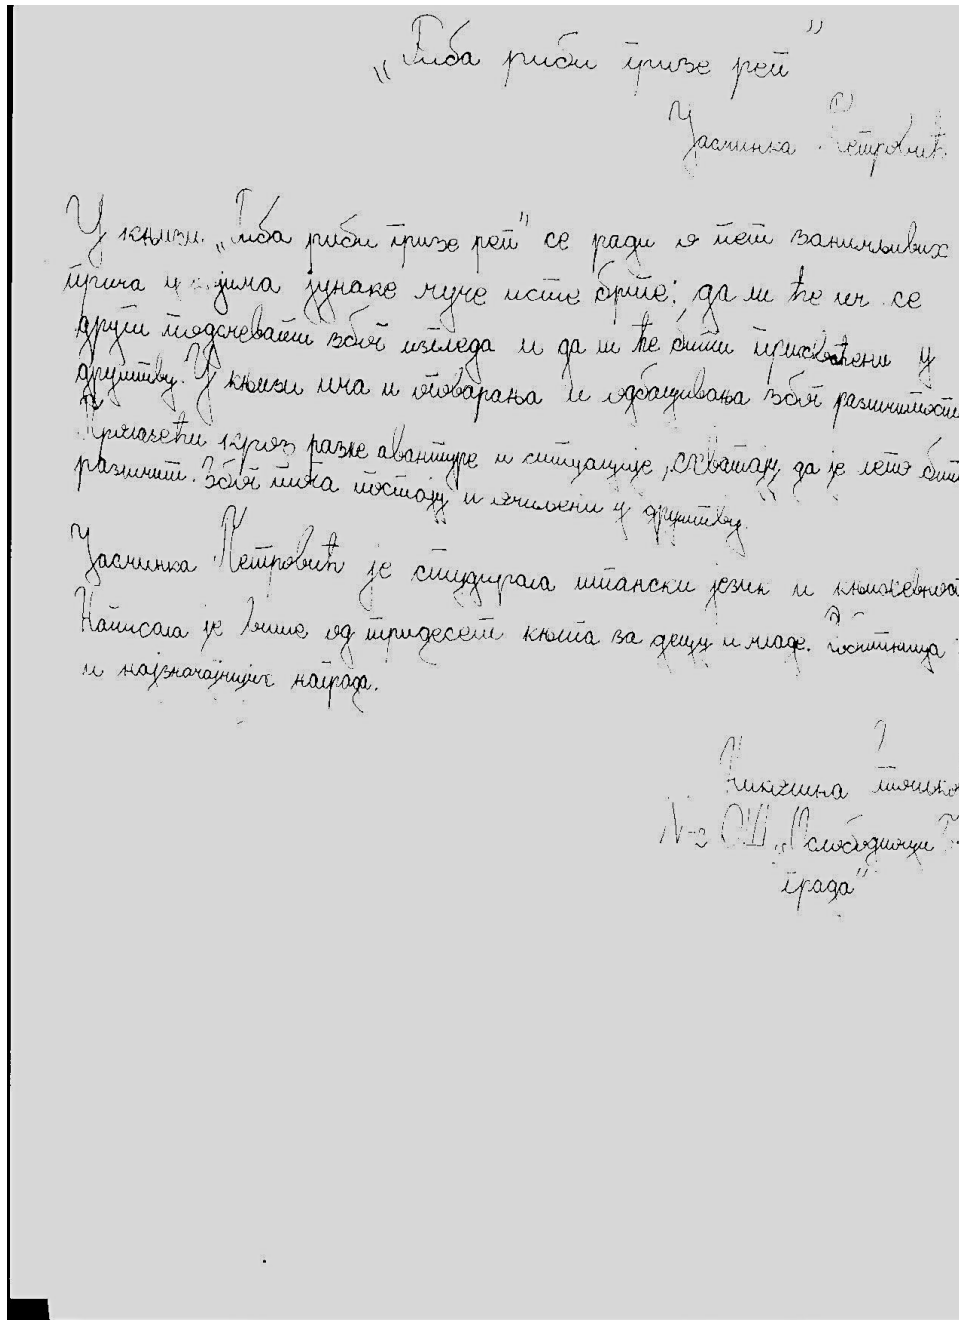 „Риба риби гризе реп”
Јасминка Петровић
У књизи „Риба риби гризе реп” се ради о пет занимљивих
прича у којима јунаке муче исте бриге: да ли ће им се
други подсмевати због изгледа и да ли ће бити прихваћени у
друштву. У књизи има и оговарања и одбацивања због различитости
Пролазећи кроз разне авантуре и ситуације, схватају да је лепо бити
различит. Због тога постају и омиљени у друштву.
Јасминка Петровић је студирала шпански језик и књижевност
Написала је више од тридесет књига за децу и младе. Добитница
и најзначајнијих награда.
ОШ „Ослободиоци
града”